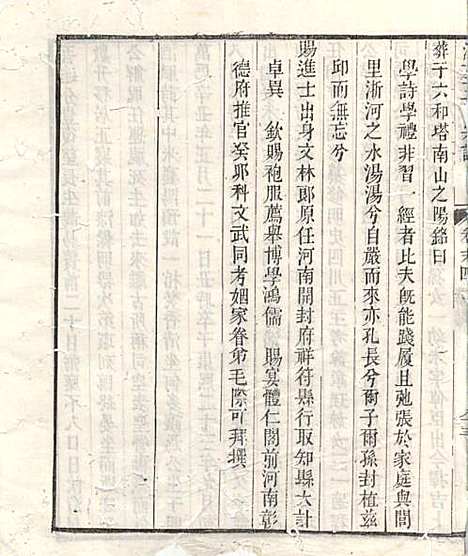 葬于六和塔南山之陽銘曰
學詩學禮非習一經者比夫旣能踐履且弛張於家庭與閭
里浙河之水湯湯兮自嚴而來亦孔長兮爾子爾孫封植茲
邱而無忘兮
賜進士出身文林郎原任河南開封府祥符縣行取知縣大計
卓異 欽賜袍服薦舉博學鴻儒 賜宴體仁閣前河南彰
德府推官癸卯科文武同考姻家眷弟毛際可拜撰